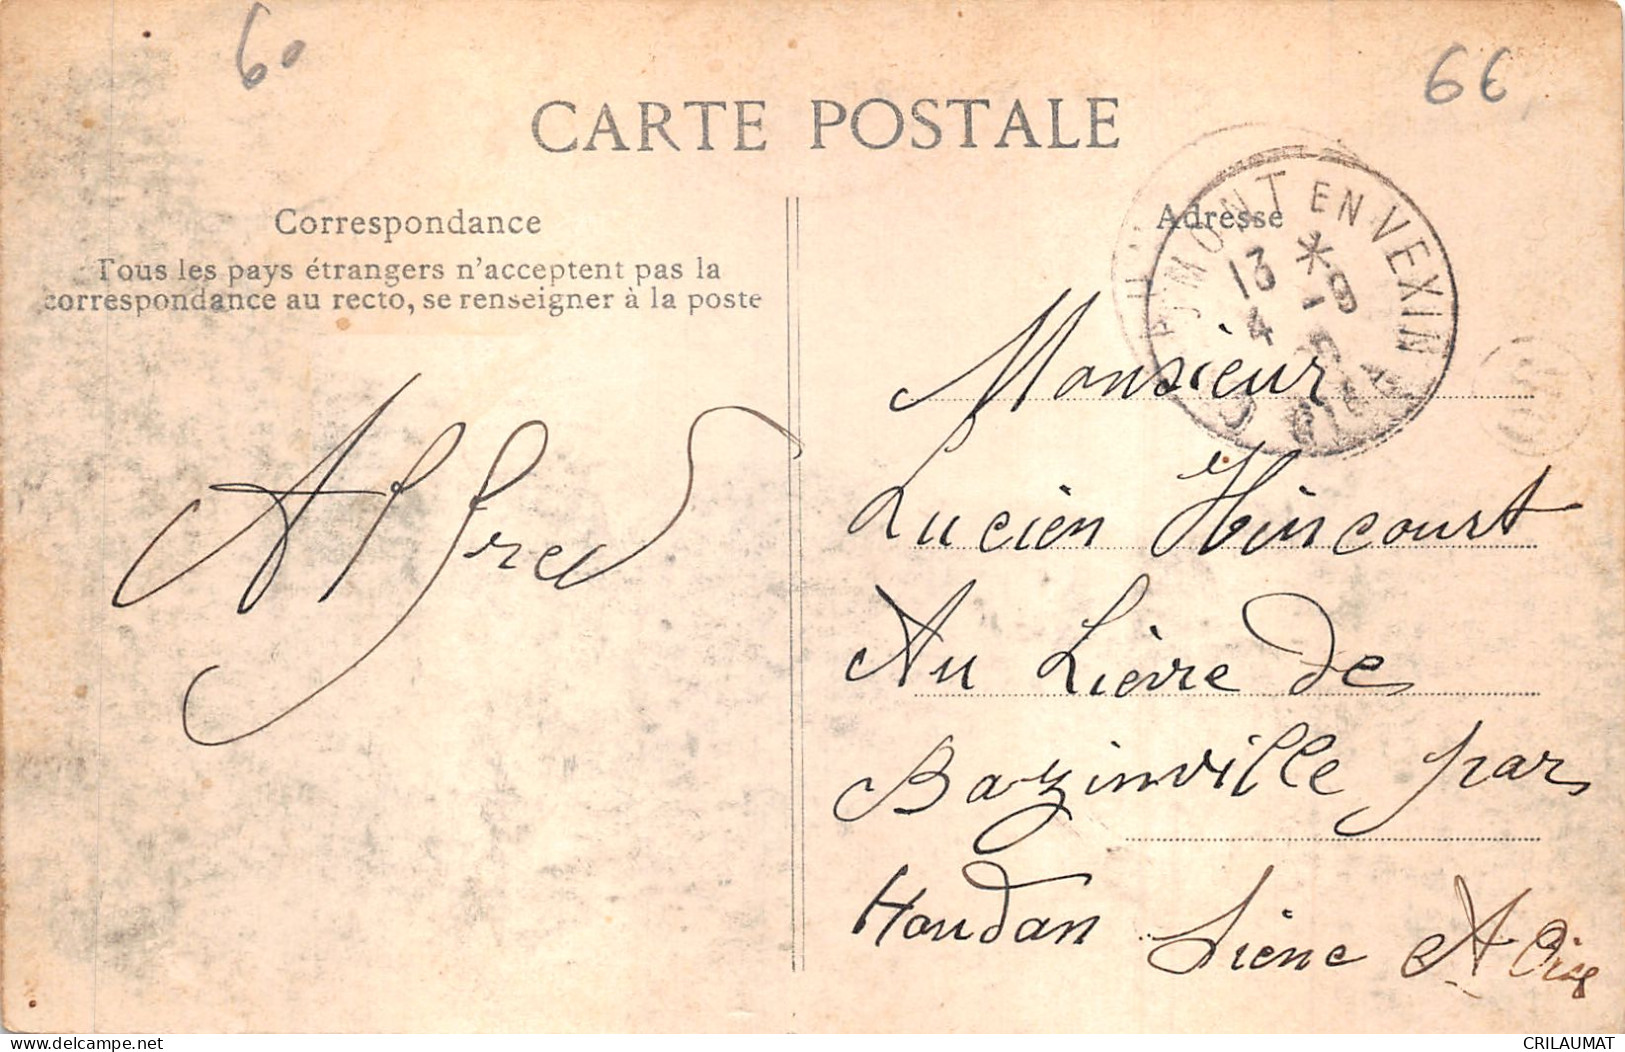 60
66
CARTE POSTALE
Correspondance
Tous les pays étrangers n'acceptent pas la
correspondance au recto, se renseigner à la poste
Adresse
MONT EN VEXIN
13 * -9
4
Alfred
Monsieur
Lucien Hincourt
Au Lievre de
Bazinville par
Houdan Siene A Oise
delcampe.net
CRILAUMAT